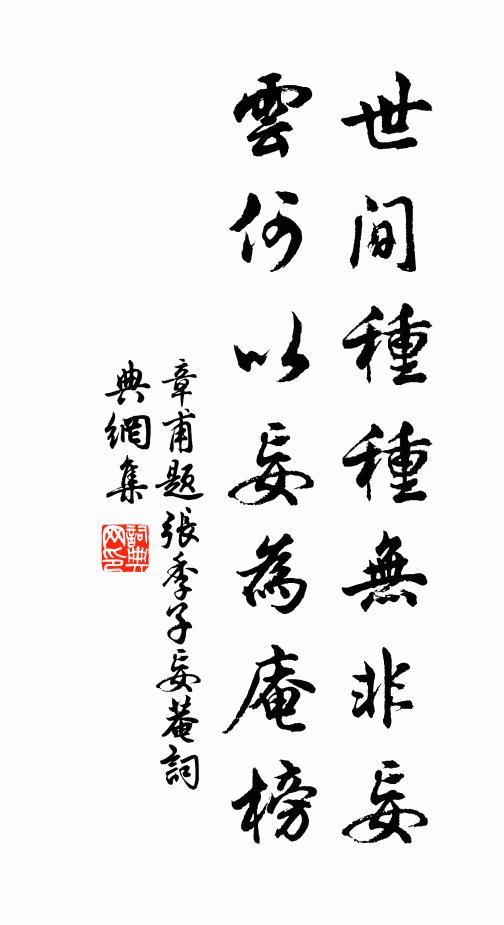 世间種種無非妄
雲何以妄為庵榜
章甫題張季子妄菴詞
典網集
詞典网印